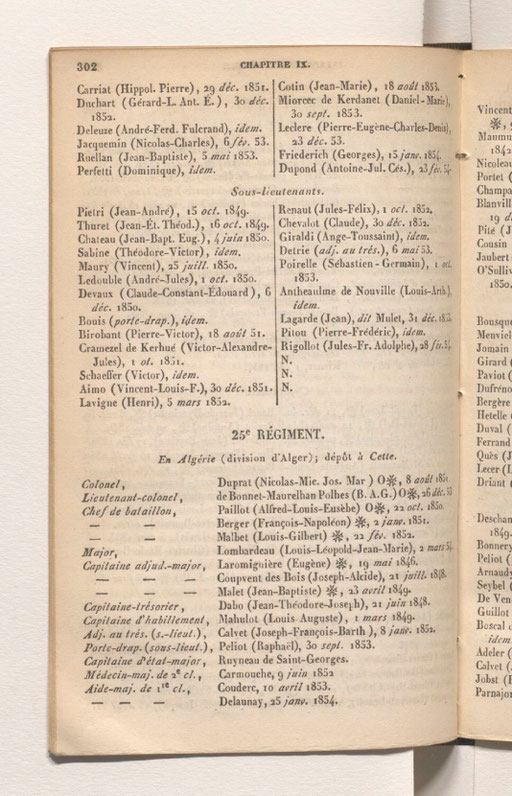 302
CHAPITRE IX.
Carriat (Hippol. Pierre), 29 déc. 1851.
Duchart (Gérard-L. Ant. É.), 30 déc.
1852.
Deleuze (André-Ferd. Fulcrand), idem.
Jacquemin (Nicolas-Charles), 6 fév. 53.
Ruellan (Jean-Baptiste), 5 mai 1853.
Perfetti (Dominique), idem.
Cotin (Jean-Marie), 18 août 1853.
Miorcec de Kerdanet (Daniel-Marie),
30 sept. 1853.
Leclere (Pierre-Eugène-Charles-Denis),
23 déc. 53.
Friederich (Georges), 15 janv. 1854.
Dupond (Antoine-Jul. Cés.), 23 fév. 54.
Sous-lieutenants.
Pietri (Jean-André), 15 oct. 1849.
Thuret (Jean-Ét. Théod.), 16 oct. 1849.
Chateau (Jean-Bapt. Eug.), 4 juin 1850.
Sabine (Théodore-Victor), idem.
Maury (Vincent), 25 juill. 1850.
Ledouble (André-Jules), 1 oct. 1850.
Devaux (Claude-Constant-Édouard), 6
déc. 1850.
Bouis (porte-drap.), idem.
Birobant (Pierre-Victor), 18 août 51.
Cramezel de Kerhué (Victor-Alexandre-
Jules), 1 ot. 1851.
Schaeffer (Victor), idem.
Aimo (Vincent-Louis-F.), 30 déc. 1851.
Lavigne (Henri), 5 mars 1852.
Renaut (Jules-Félix), 1 oct. 1852.
Chevalot (Claude), 30 déc. 1852.
Giraldi (Ange-Toussaint), idem.
Detrie (adj. au trés.), 6 mai 53.
Poirelle (Sébastien-Germain), 1 oct.
1853.
Antheaulme de Nouville (Louis-Arth.),
idem.
Lagarde (Jean), dit Mulet, 31 déc. 1853.
Pitou (Pierre-Frédéric), idem.
Rigollot (Jules-Fr. Adolphe), 28 fév. 54.
N.
N.
N.
25e RÉGIMENT.
En Algérie (division d'Alger); dépôt à Cette.
Colonel, Duprat (Nicolas-Mic. Jos. Mar ) O❊, 8 août 1851.
Lieutenant-colonel, de Bonnet-Maurelhan Polhes (B. A.G.) O❊, 26 déc. 53
Chef de bataillon, Paillot (Alfred-Louis-Eusèbe) O❊, 22 oct. 1850.
— — Berger (François-Napoléon) ❊, 2 janv. 1851.
— — Malbet (Louis-Gilbert) ❊, 22 fév. 1852.
Major, Lombardeau (Louis-Léopold-Jean-Marie), 2 mars 54.
Capitaine adjud.-major, Laromiguière (Eugène) ❊, 19 mai 1846.
— — — Coupvent des Bois (Joseph-Alcide), 21 juill. 1848.
— — — Malet (Jean-Baptiste) ❊, 23 avril 1849.
Capitaine-trésorier, Dabo (Jean-Théodore-Joseph), 21 juin 1848.
Capitaine d'habillement, Mahulot (Louis-Auguste), 1 mars 1849.
Adj. au trés. (s.-lieut.), Calvet (Joseph-François-Barth ), 8 janv. 1852.
Porte-drap. (sous-lieut.), Peliot (Raphaël), 30 sept. 1853.
Capitaine d'état-major, Ruyneau de Saint-Georges.
Médecin-maj. de 2e cl., Carmouche, 9 juin 1852
Aide-maj. de 1re cl., Couderc, 10 avril 1853.
— — — Delaunay, 25 janv. 1854.
Vincent
❊,
1842
Nicoleau
Portet (
Champa
Blanvill
19 d
Pité (J
Cousin
Jaubert
O'Sulliv
1850.
Bousque
Meuviel
Jomain
Girard (
Paviot (
Dufréno
Bergère
Hetelle (
Duval (
Ferrand
Quès (J
Lecer (L
Driant (
Deschan
1849.
Bonnery
Peliot (
Arnaudy
Seybel (
De Ven
Guillot
idem.
Adeler (
Calvet (
Jobst (F
Parnajor